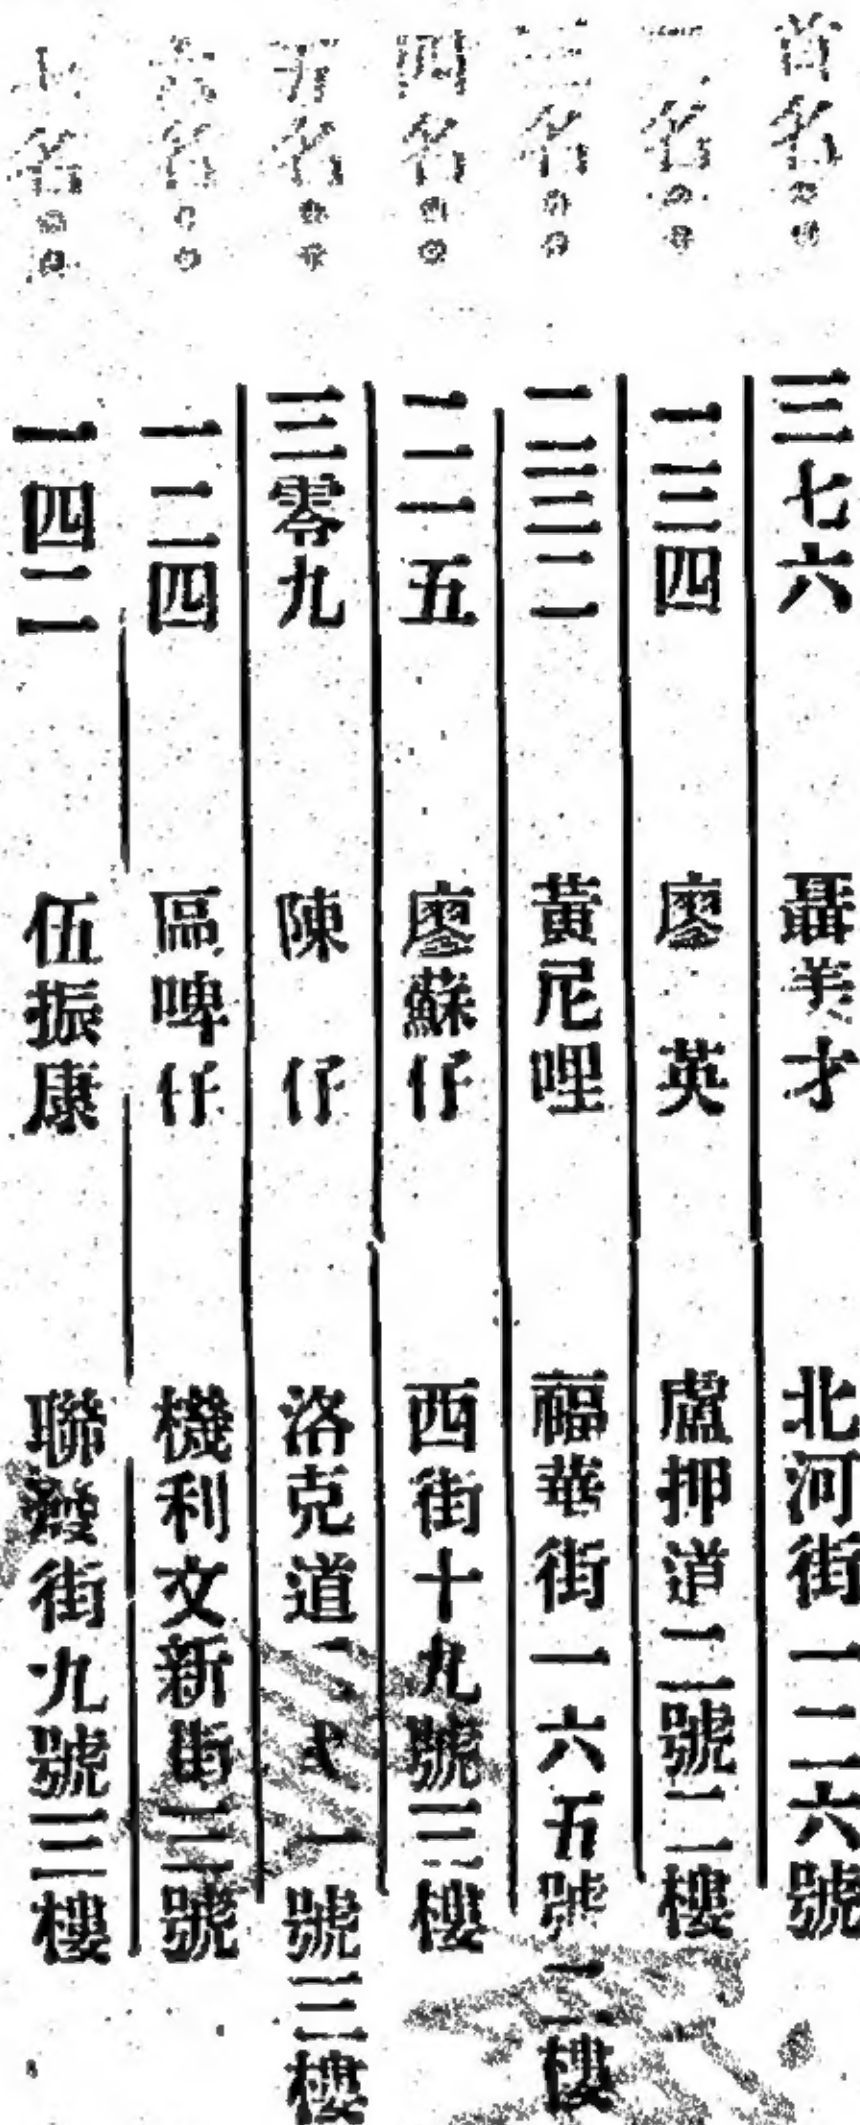 首名 三七六 聶美才 北河街一二六號
二名 一三四 廖英 盧押道二號二樓
三名 二三二 黃尼哩 福華街一六五號二樓
四名 二一五 廖蘇仔 西街十九號三樓
五名 三零九 陳仔 洛克道 一號三樓
六名 一二四 區啤仔 機利文新街三號
七名 一四二 伍振康 聯發街九號三樓